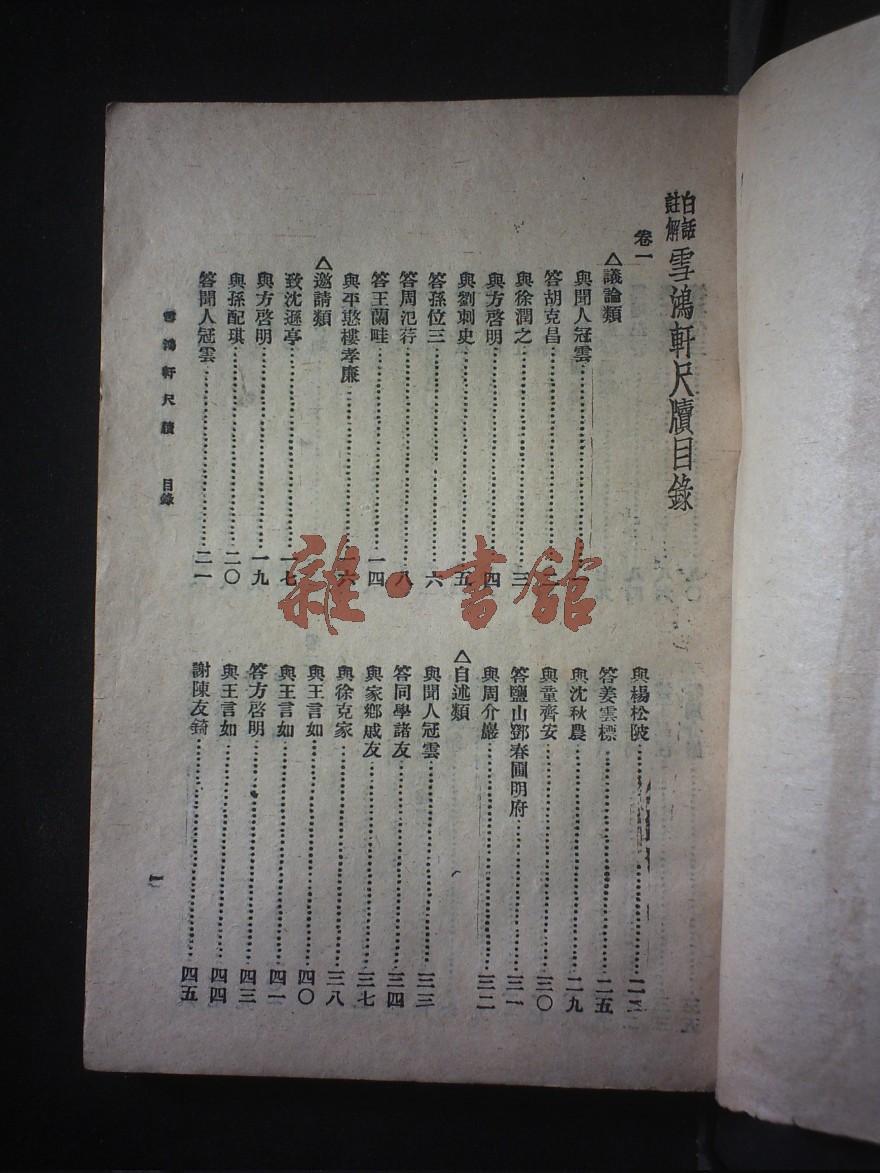 白話註解雪鴻軒尺牘目錄
卷一
△議論類
與聞人冠雲
答胡克昌
與徐潤之……三
與方啓明……四
與劉刺史……五
答孫位三……六
答周氾荇……八
答王蘭畦……一四
與平憨樓孝廉……一六
△邀請類
致沈遜亭……一七
與方啓明……一九
與孫配琪……二〇
答聞人冠雲……二一
與楊松陂……二三
答姜雲標……二五
與沈秋農……二九
與童齊安……三〇
答鹽山鄧春圃明府……三一
與周介巖……三二
△自述類
與聞人冠雲……三三
答同學諸友……三四
與家鄉戚友……三七
與徐克家……三八
與王言如……四〇
與王言如……四一
答方啓明……四三
與王言如……四四
謝陳友錡……四五
雪鴻軒尺牘 目錄
一
雜·書館